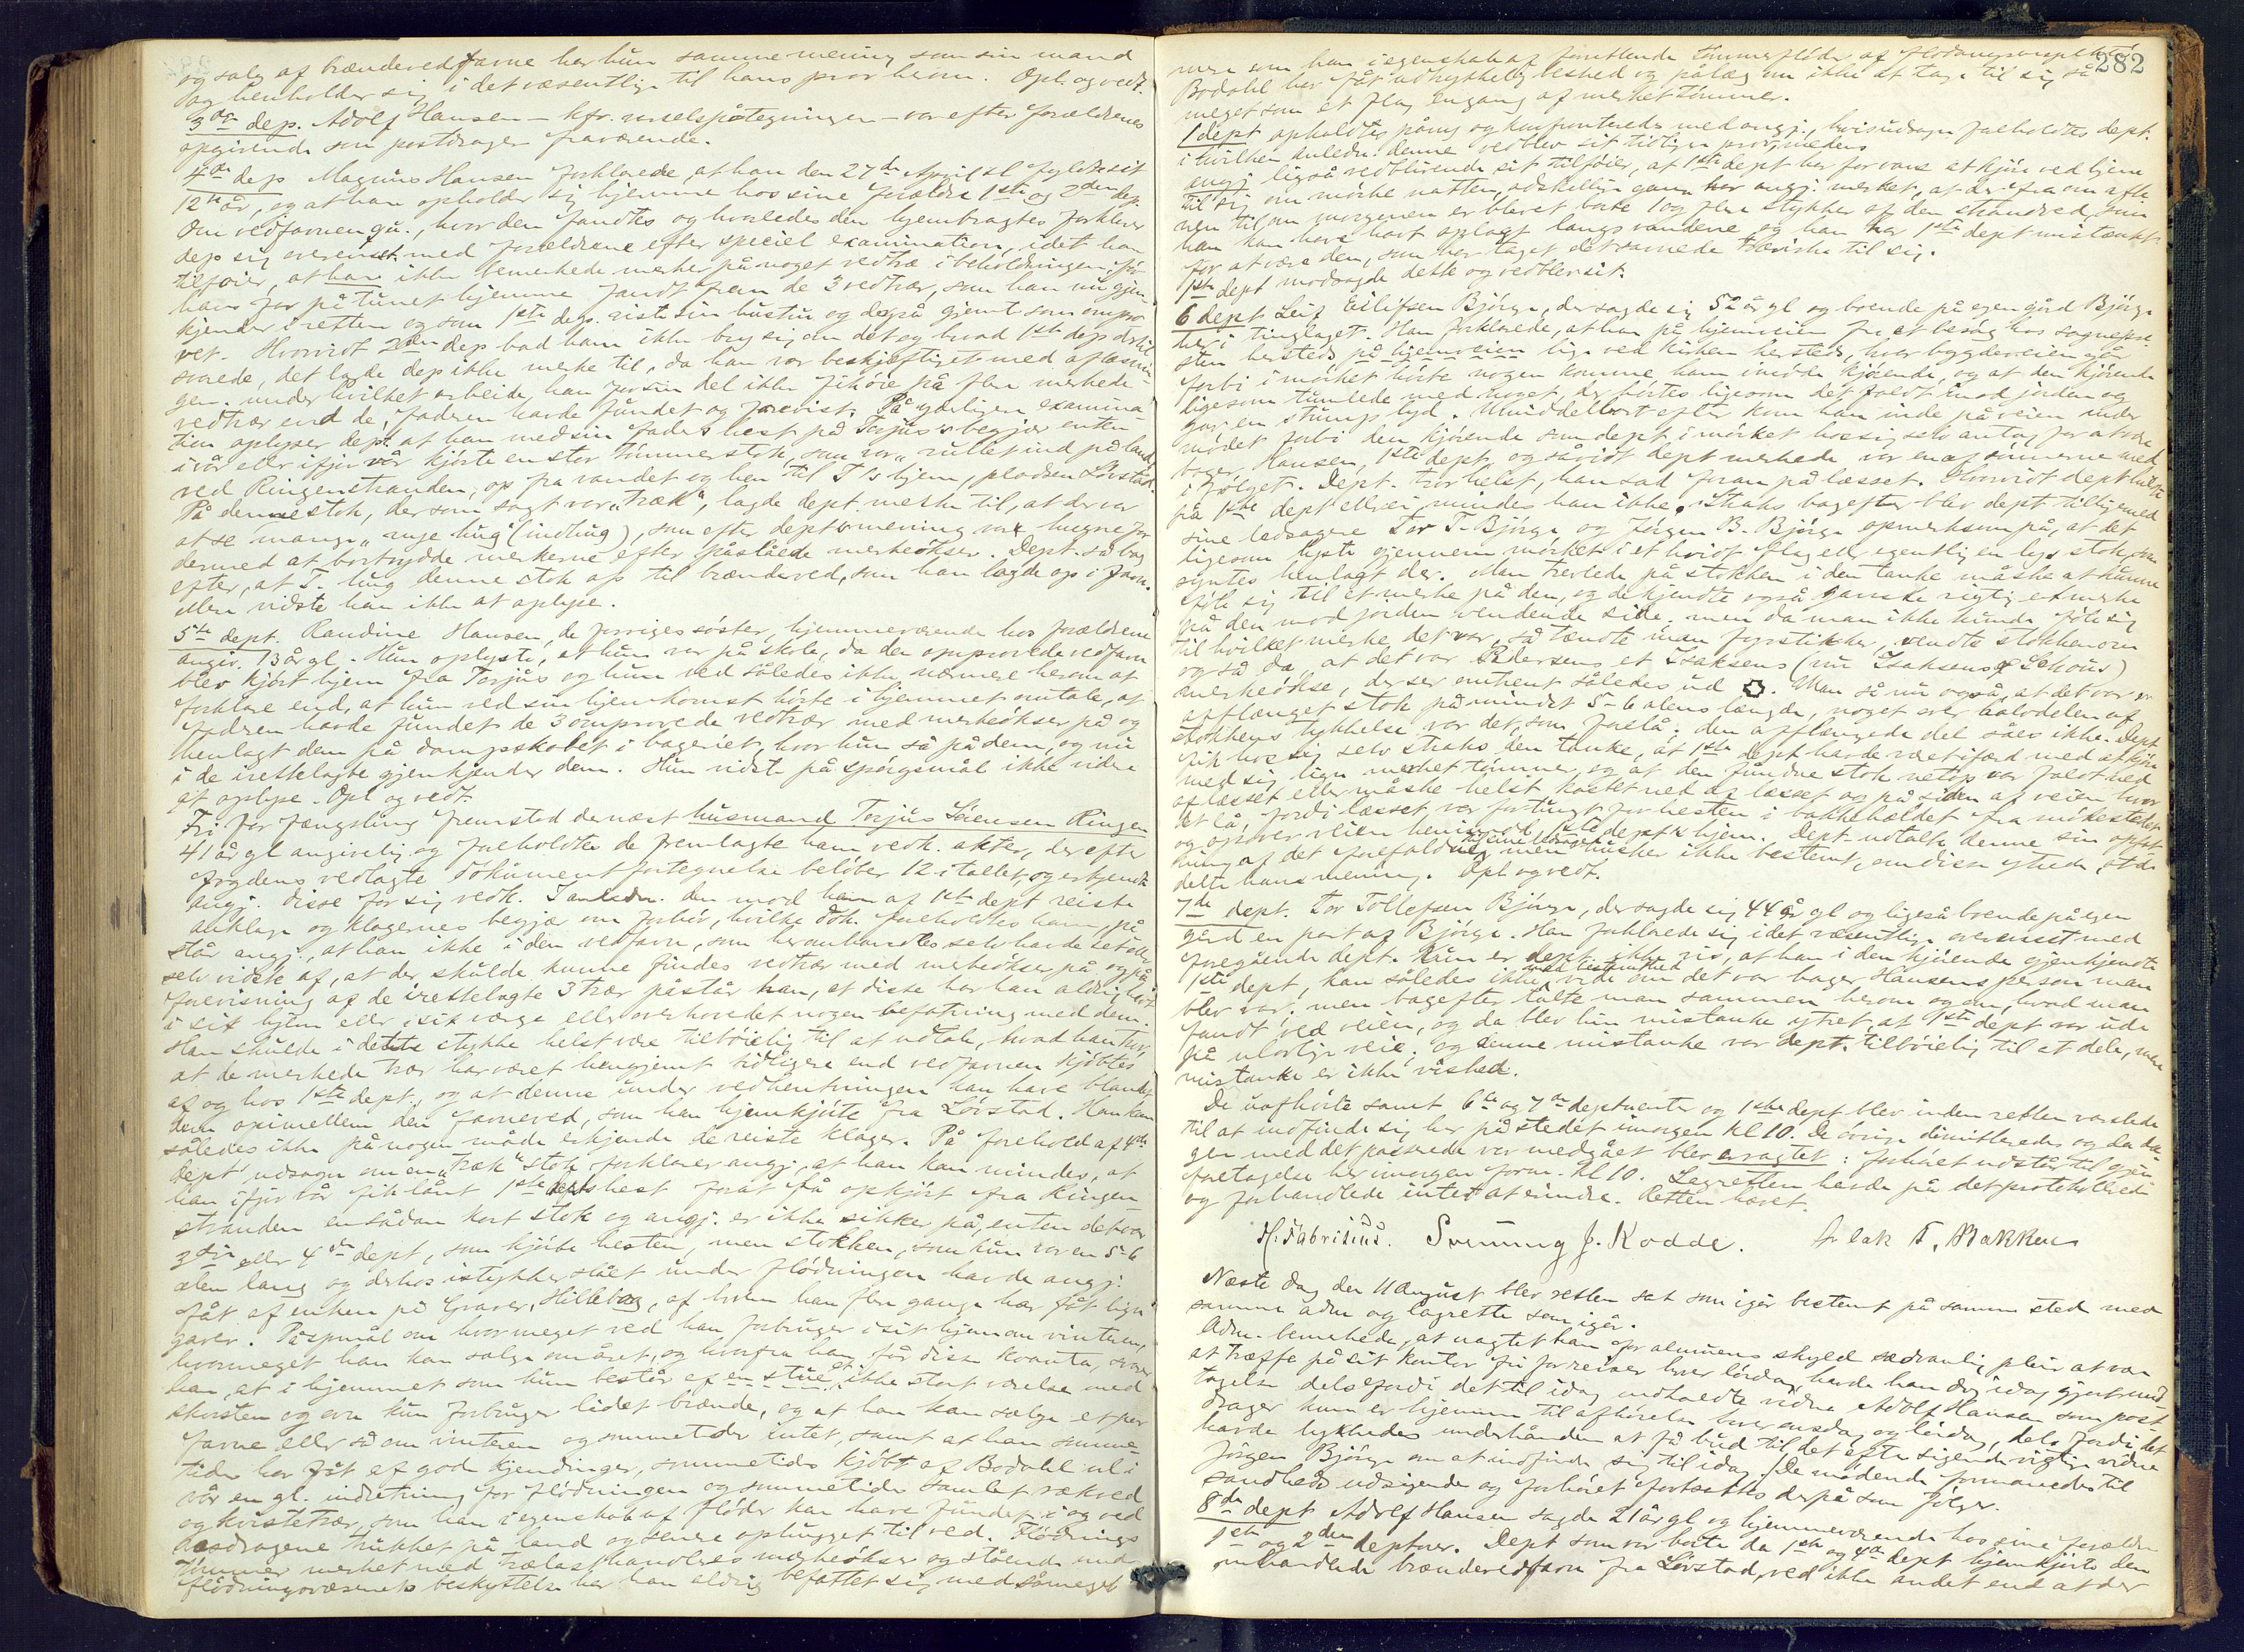 og salg af brændevedfavne har hun samme mening som sin mand
og henholder sig i det væsentlige til hans prov herom. Opl. og vedt.
3die dep. Adolf Hansen - kfr. varselspåtegningen - var efter forældrenes
opgivende som postdrager fraværende.
4de dep Magnus Hansen forklarede, at han den 27de April sl fyldte sit
12te år, og at han opholder sig hjemme hos sine forældre 1ste og 2den dep.
Om vedfavnen qu., hvor den fandtes og hvorledes den hjembragtes forklarer
dep sig overenst. med forældrene efter speciel examination, idet han
tilføier, at han ikke bemerkede merker på noget vedtræ i beholdningen før
hans far på tunet hjemme fandt frem de 3 vedtrær, som han nu gjen-
kjender i retten og som 1ste dep. viste sin hustru og også gjemt som ompro-
vet. Hvorvidt 2den dep bad ham ikke bry sig om det og hvad 1ste dep dertil
svarede, det lagde dep ikke merke til, da han var beskjæftiget med aflæsnin-
gen, under hvilket arbeide han for sin del ikke fik øie på flere merkede
vedtrær end de, faderen havde fundet og forevist. På yderligere examina-
tion oplyser dept. at han med sin faders hest på Torjus's begjær enten
i vår eller ifjor vår kjørte en stor tømmerstok, som var "rullet ind på land"
ved Ringenstranden, op fra vandet og hen til T's hjem, pladsen Løvstad.
På denne stok, der som sagt var "træk", lagde dept. merke til, at der var
at se mange "nye hug" (indhug), som efter depts mening var hugne for
dermed at bortrydde merkerne efter påslåede merkeøkser. Dept. så bag
efter, at T. hug denne stok op til brændeved, som han lagde op i favn.
Mere vidste han ikke at oplyse.
5te dept. Randine Hansen, de forriges søster, hjemmeværende hos forældrene
angiv. 13 år gl. Hun oplyste, at hun var på skole, da den omprovede vedfavn
blev kjørt hjem fra Torjus og hun ved således ikke nærmere herom at
forklare end, at hun ved sin hjemkomst hørte i hjemmet omtale, at
faderen havde fundet de 3 omprovede vedtrær med merkeøkser på og
henlagt dem på dampskabet i bageriet, hvor hun så på dem, og nu
i de irettelagte gjenkjender dem. Hun vidste på spørgsmål ikke videre
at oplyse. Opl og vedt.
Fri for fængsling fremstod dernæst husmand Torjus Leiensen Ringen
41 år gl angivelig og foreholdtes de fremlagte ham vedk. akter, der efter
fogdens vedlagte dokumentfortegnelse beløber 12 i tallet, og erkjendte
angj. disse for sig vedk. I anledn. den mod ham af 1ste dept reiste
anklage og klagernes begjær om forhør, hvilke dok. foreholdtes ham, på
står angj., at han ikke i den vedfavn, som heromhandles selv havde set eller
selv vidste af, at der skulde kunne findes vedtrær med merkeøkser på og på
forevisning af de irettelagte 3 trær påstår han, at disse har han aldrig havt
i sit hjem eller i sit værge eller overhovedet nogen befatning med dem.
Han skulde i dette stykke helst være tilbøielig til at udtale, hvad han tror,
at de merkede trær har været hengjemt tidligere end vedfavnen kjøbtes
af og hos 1ste dept., og at denne under vedhentningen kan have blandet
dem opimellem den favneved, som han hjemkjørte fra Løvstad. Han kan
således ikke på nogen måde erkjende de reiste klager. På forehold af 4de
dept udsagn om en "træk" stok forklarer angj., at han kan mindes, at
han ifjor vår fik lånt 1ste depts hest forat få opkjørt fra Ringen-
stranden en sådan kort stok og angj. er ikke sikker på, enten det var
3die eller 4de dept, som kjørte hesten, men stokken, som kun var en 5-6
alen lang og derhos istykkerslået under flødningen havde angj.
fåt af enken på Graver, Hillebog, af hvem han flere gange har fåt lign
gaver. Påspmål om hvor meget ved han forbruger i sit hjem om vinteren,
hvormeget han kan sælge om året, og hvorfra han får disse kvanta, svarer
han, at i hjemmet som kun består af en stue, et ikke stort værelse med
skorsten og ovn kun forbruger lidet brænde, og at han kan sælge et par
favne eller så om vinteren og sommetider intet, samt at han somme-
tider har fåt af god kjendinger, sommetider kjøbt af Bodahl nl i
vår en gl. indretning for flødningen og sommetider samlet rækved
og kvistetrær, som han i egenskab af fløder kan have fundet i og ved
vasdragene trukket på land og senere ophugget til ved. Flødnings
tømmer merket med trælasthandleres merkeøkser og stående under
flødningsvæsenets beskyttelse har han aldrig befattet sig med såmeget
282
mere som han i egenskab af forestående tømmerfløder af flødningsinspektør
Bodahl har fåt udtrykkelig besked og pålæg om ikke at tage til sig så
meget som et flag engang af merket tømmer.
1 dept opholdtes påny og konfronteredes med angj., hvis udsagn foreholdtes dept.
i hvilken anledn. denne vedblev sit tidligere prov, medens
angj. ligeså vedblivende sit tilføier, at 1ste dept har forvane at kjøre ved hjem
til sig om mørke natten, adskillige gange har angj. merket, at der fra om afte-
nen til om morgenen er blevet borte 1 og flere stykker af den strandved, som
han kan have havt oplagt langs vandene og han har 1ste dept mistænkt
for at være den, som har taget det savnede trævirke til sig.
1ste dept modsagde dette og vedblev sit.
6 dept Leif Eilifsen Bjørge, der sagde sig 52 år gl og boende på egen gård Bjørge
her i tinglaget. Han forklarede, at han på hjemveien fra et besøg hos sognepre-
sten hersteds på hjemveien lige ved kirken hersteds, hvor bygdeveien går
forbi i mørket hørte nogen komme ham imøde kjørende, og at den kjørende
ligesom tumlede med noget, der hørtes ligesom det faldt imod jorden og
gav en strumps lyd. Umiddelbart efter kom han inde på veien under
mødet forbi den kjørende som dept. i mørket hos sig selv antog for at være
bager Hansen, 1ste dept. og såvidt dept merkede var en af sønnerne med
i følget. Dept. tror helst, han sad foran på læsset. Hvorvidt dept hilste
på 1ste dept eller ei mindes han ikke. Straks bagefter blev dept tilligemed
sine ledsagere Tor T. Bjørge og Jørgen B. Bjørge opmerksom på, at det
ligesom lyste gjennem mørket i et hvidt flag el. egentlig en lys stok, som
syntes henlagt der. Man trevlede på stokken i den tanke måske at kunne
føle sig til et merke på den, og de kjendte også ganske rigtig et merke
på den mod jorden vendende side; men da man ikke kunde føle sig
til hvilket merke det var, så tændte man fyrstikker, vendte stokken om
og så da, at det var Pedersens et Isaksens (nu Isaksens & Schous)
merkeøkse, der ser omtrent således ud. Man så nu også, at det var en
afflænget stok på mindst 5-6 alens længde, noget over halvdelen af
stokkens tykkelse var det, som forelå; den afflængede del såes ikke. Dept
fik hos sig selv straks den tanke, at 1ste dept havde været ifærd med at kjøre
med sig lign merket tømmer og at den fundne stok netop var faldt ned
af læsset eller måske helst kastet ned af læsset og på siden af veien hvor
det lå, fordi læsset var for tungt for hesten i bakkeheldet fra mødestedet
og opover veien henimod 1ste depts hjem. Dept. udtalte denne sin opfat-
ning af det forefaldne men husker ikke bestemt, om disse ytrede, at de
delte hans mening. Opl og vedt.
7de dept. Tor Tollefsen Bjørge, der sagde sig 44 år gl og ligeså boende på egen
gård en part af Bjørge. Han forklarede sig i det væsentlige overensst med
foregående dept. Kun er dept. ikke vis, at han i den kjørende gjenkjendte
1ste dept, kan således ikke med bestemthed vide om det var bager Hansens person man
blev var; men bagefter talte man sammen herom og om, hvad man
fandt ved veien, og da blev hin mistanke ytret at 1ste dept var ude
på ulovlige veie; og denne mistanke var dept. tilbøielig til at dele, men
mistanke er ikke vished.
De uafhørte samt 6te og 7de deptnenter og 1ste dept blev inden retten varslede
til at indfinde sig her på stedet imorgen kl 10. De øvrige dimitteredes og da da-
gen med det passerede var medgået blev eragtet: forhøret udstår til gjen-
foretagelse her imorgen form. kl 10. Lagretten havde på det protokollerede
og forhandlede intet at erindre. Retten hævet.
H. Fabritius. Svenung J. Kodde. Aslak T. Bakken
Næste dag den 11 August blev retten sat som igår bestemt på samme sted med
samme adm og lagrette som igår.
Adm. bemerkede, at uagtet han for almuens skyld sedvanlig pleier at være
at træffe på sit kontor fri for reiser hver lørdag, havde han dog idag gjort und-
tagelse dels fordi det til idag indkaldte vidne Adolf Hansen som post-
drager kun er hjemme til afhørelse hver onsdag og lørdag, dels fordi det
havde lykkedes underhånden at få bud til det efter sigende vigtige vidne
Jørgen Bjørge om at indfinde sig til idag. De mødende formanedes til
sandheds udsigende og forhøret fortsattes derpå som følger.
8de dept Adolf Hansen sagde 21 år gl og hjemmeværende hos sine forældre
1ste og 2den deptner. Dept som var borte da 1ste og 4de dept hjemkjørte den
omhandlede brændevedfavn fra Løvstad, ved ikke andet end at der